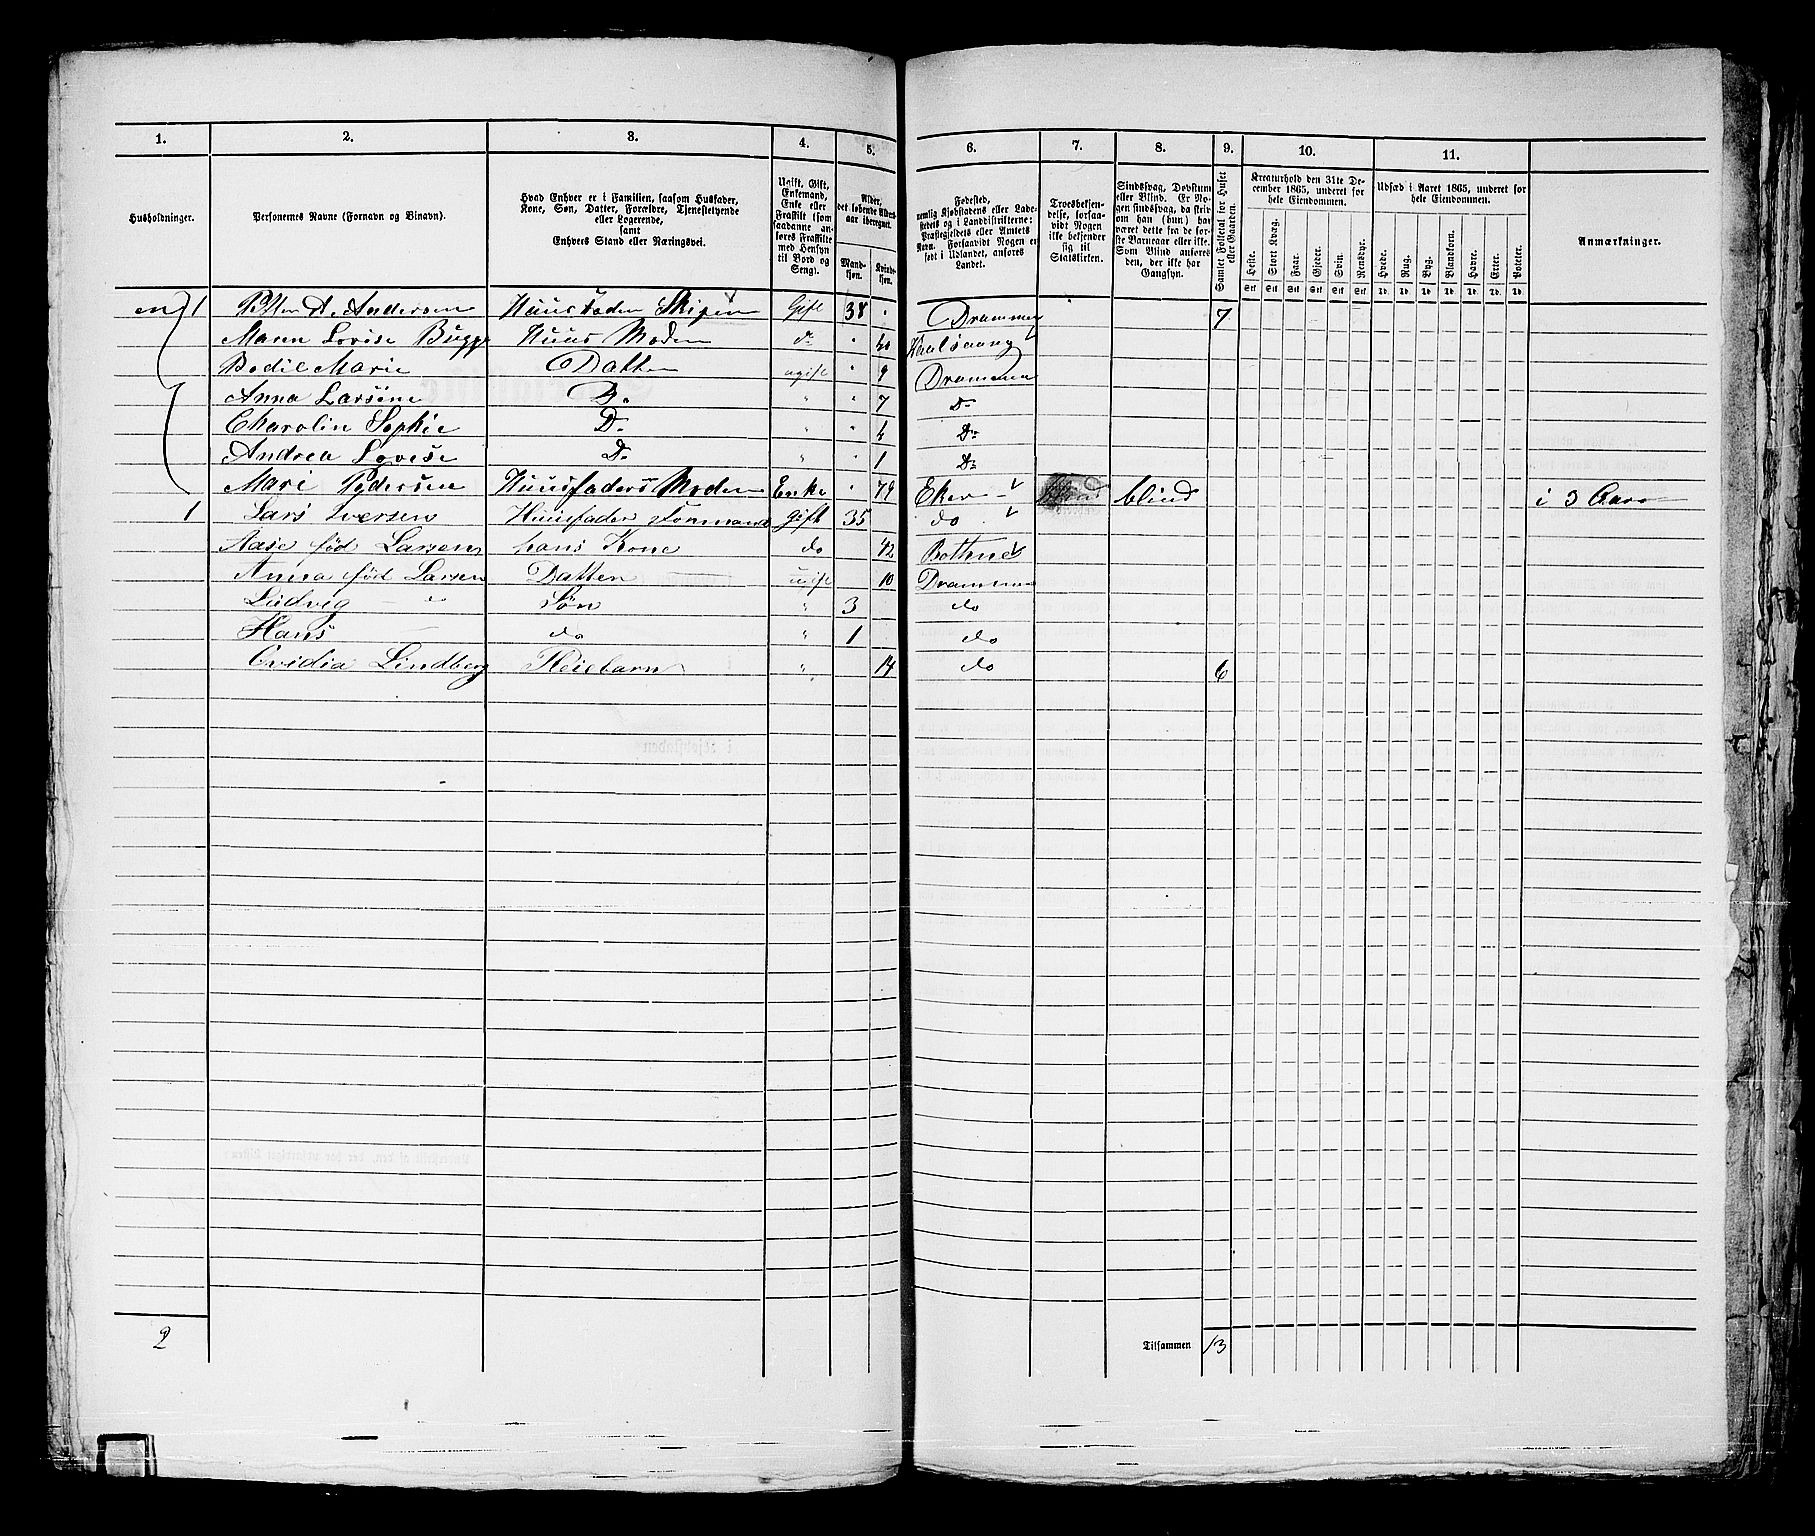 1. 2. 3. 4. 5. 6. 7. 8. 9. 10. 11.
Husholdninger.
Personernes Navne (Fornavn og Binavn).
Hvad Enhver er i Familien, saasom Husfader,
Kone, Søn, Datter, Forældre, Tjenestetyende
eller Logerende,
samt
Enhvers Stand eller Næringsvei.
Ugift, Gift,
Enkemand,
Enke eller
Fraskilt (som
saadanne an-
føres Fraskilte
med Hensyn
til Bord og
Seng).
Alder,
det løbende Alders-
aar iberegnet.
Mand-
kjøn.
Kvind-
kjøn.
Fødested,
nemlig Kjøbstadens eller Lade-
stedets og i Landdistrikterne:
Præstegjeldets eller Amtets
Navn. Forsaavidt Nogen er
født i Udlandet, anføres
Landet.
Troesbekjen-
delse, forsaa-
vidt Nogen
ikke bekjender
sig til
Statskirken.
Sindssvag, Døvstum
eller Blind. Er No-
gen sindssvag, da skri-
ves om han (hun) har
været dette fra de før-
ste Barneaar eller ikke.
Som Blind anføres
den, der ikke har
Gangsyn.
Samlet Folketal for Huset
eller Gaarden.
Kreaturhold den 31te De-
cember 1865, underet for
hele Eiendommen.
Heste. Stort Kvæg. Faar. Gjeder. Svin. Rensdyr.
Stk Stk Stk Stk Stk Stk
Udsæd i Aaret 1865, underet for
hele Eiendommen.
Hvede. Rug. Byg. Blandkorn. Havre. Erter. Poteter.
Td. Td. Td. Td. Td. Td. Td.
Anmærkninger.
en 1 Petter A. Andersen Huusfader Skipper Gift 38 " Drammen 7
Maren Lovise Bugge Huus Moder do "
Bodil Marie Datter ugift " 9 Drammen
Anna Larsine Do " " 7 Do
Charolin Sophie Do " " 4 Do
Andrea Lovise Do " " 1 Do
Mari Pedersen Huusfaders Moder Enke " 79 Eker blind blind i 3 Aar
1 Lars Iversen Huusfader Tømmand Gift 35 do
Aase fød Larsen hans Kone do 42 Bottne
Anna fød Larsen Datter ugift 10 Drammen
Ludvig do Søn " 3 do
Hans do " 1 do
Ovidia Lindberg Pleiebarn " 14 do 6
2 Tilsammen 13